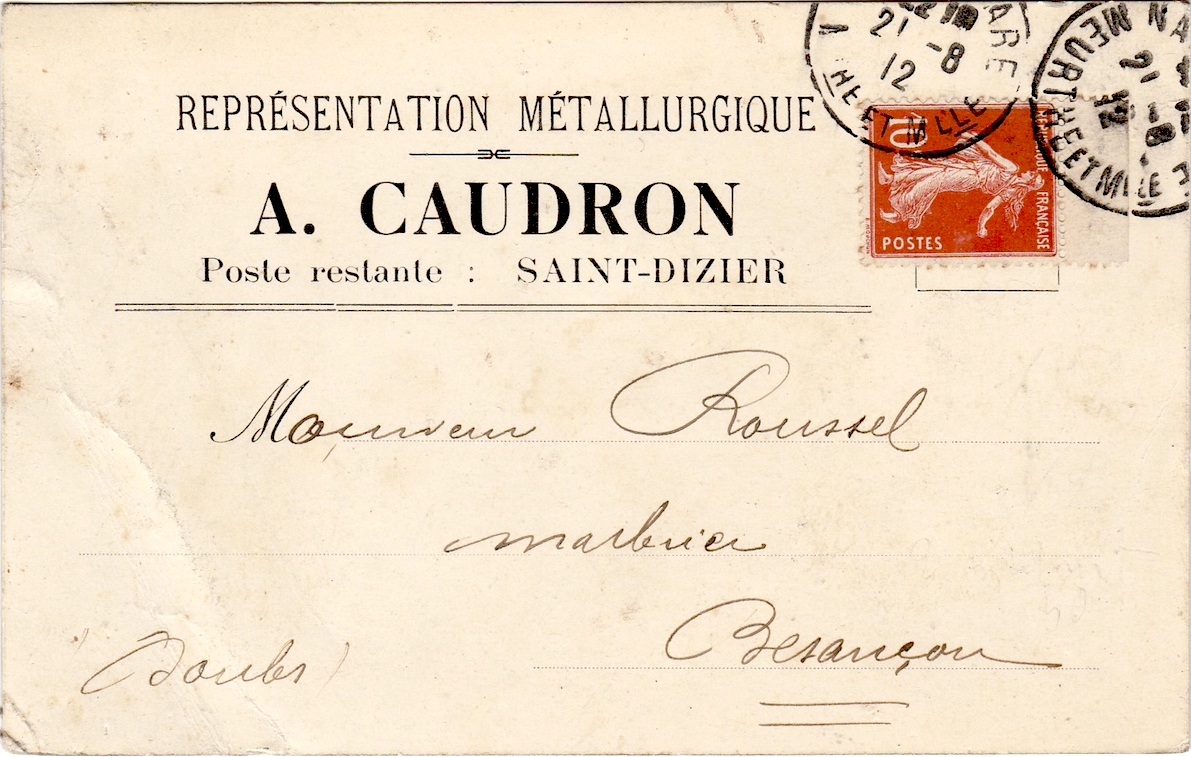 REPRÉSENTATION MÉTALLURGIQUE
A. CAUDRON
Poste restante : SAINT-DIZIER
Monsieur Roussel
marbrier
Besançon
(Doubs)
10
POSTES
RÉPUBLIQUE FRANÇAISE
GARE
21 -8
12
HE ET MLLE
NA
21 -8
12
MEURTHE ET MLLE